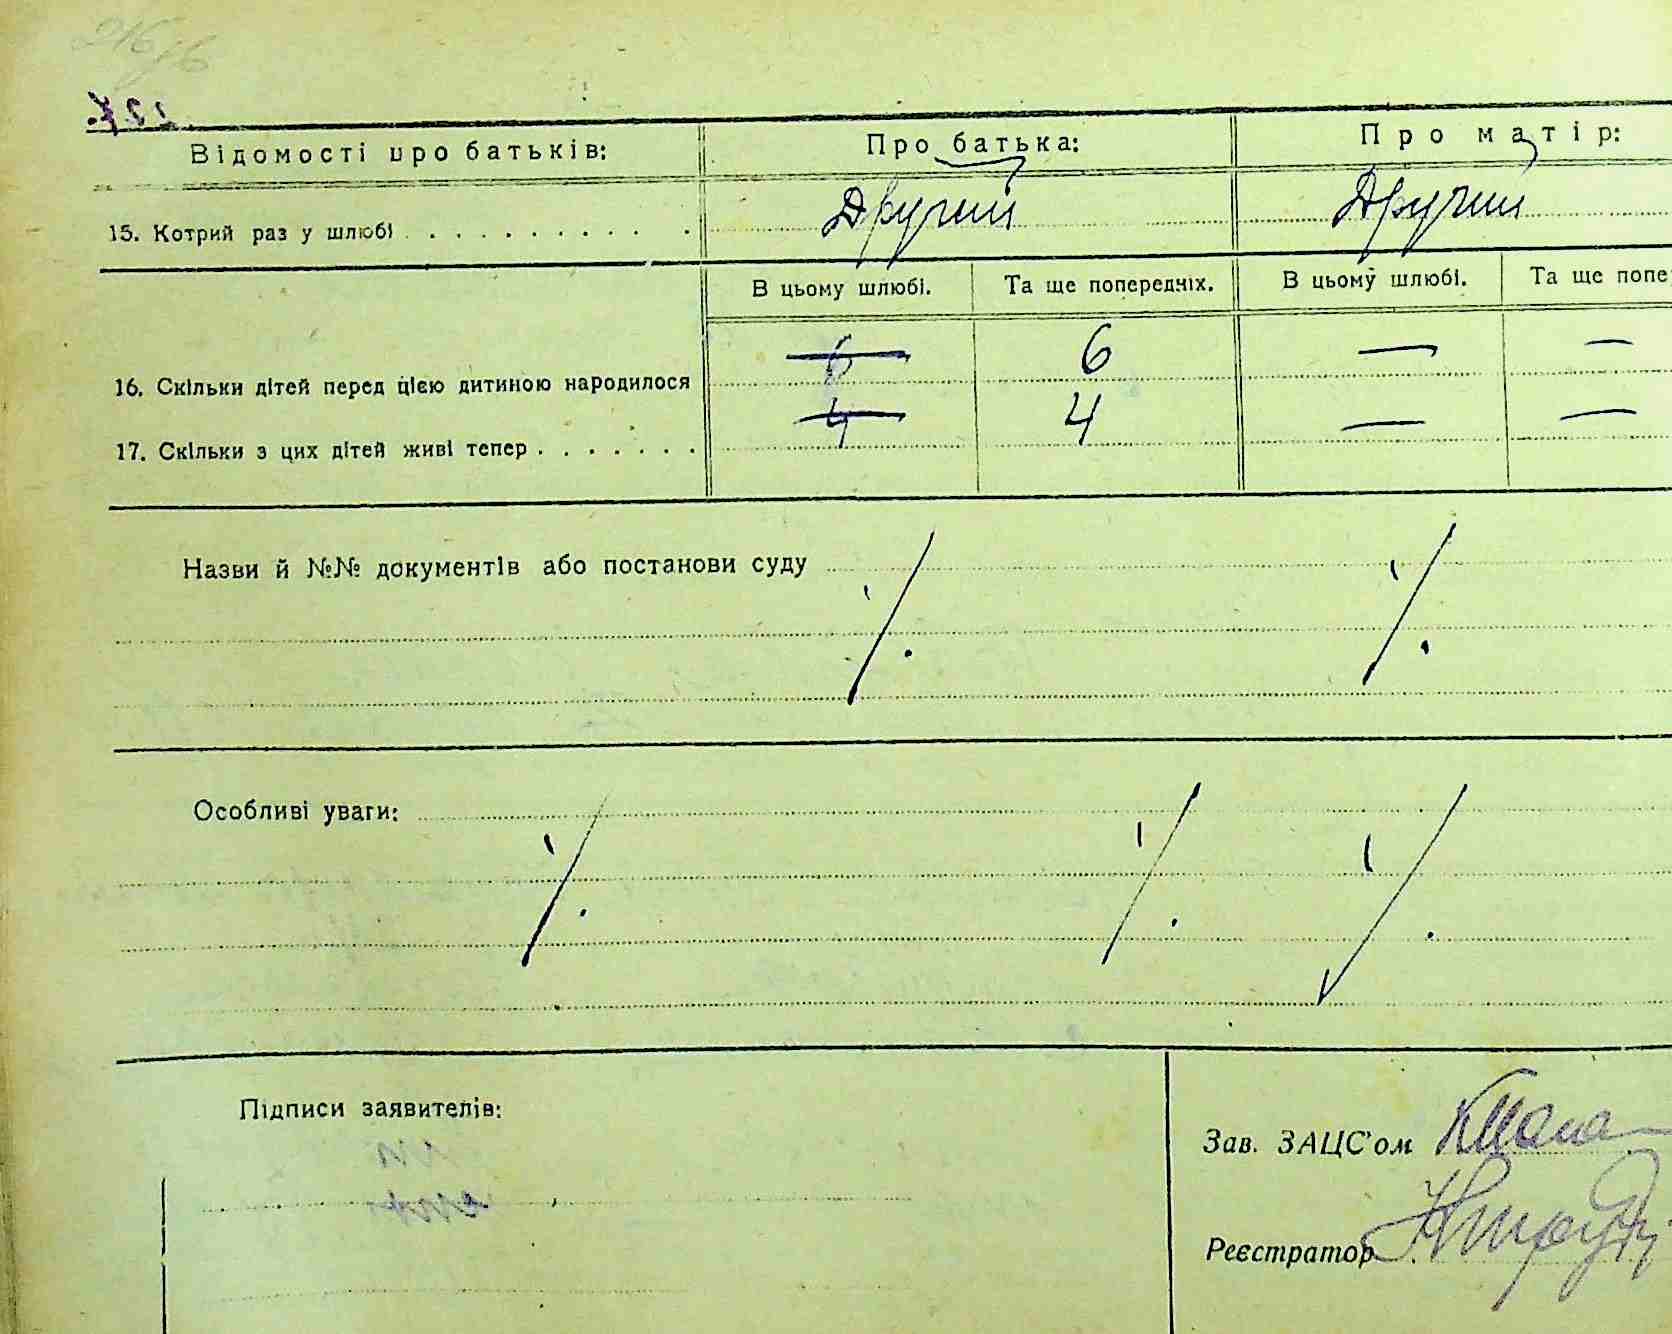 216 об
Відомості про батьків: Про батька: Про матір:
15. Котрий раз у шлюбі . . . . . . . . . . . Другий Другий
В цьому шлюбі. Та ще попередніх. В цьому шлюбі. Та ще попе
16. Скільки дітей перед цією дитиною народилося 6 6 — —
17. Скільки з цих дітей живі тепер . . . . . . . 4 4 — —
Назви й №№ документів або постанови суду
Особливі уваги:
Підписи заявителів:
Зав. ЗАЦС'ом
Реєстратор